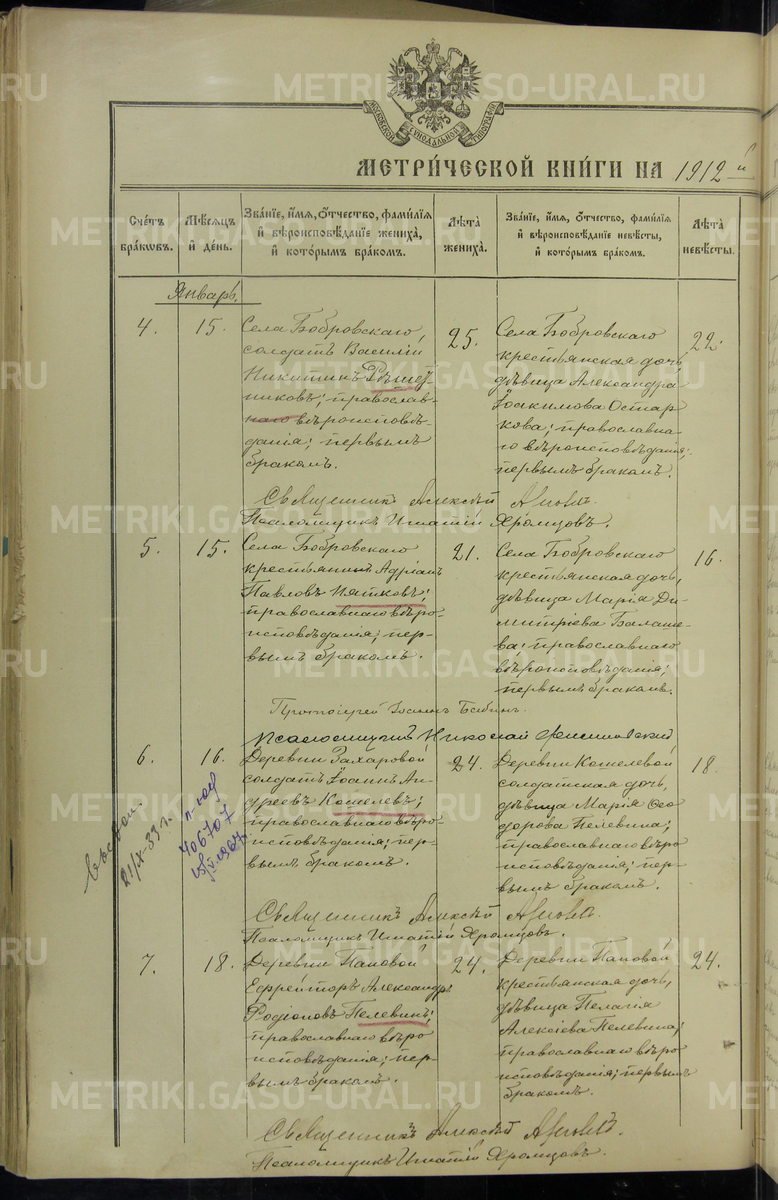 МОСКОВСКОЙ СѴНОДАЛЬНОЙ ТИПОГРАФІИ
МЕТРИ́ЧЕСКОЙ КНИ́ГИ НА 1912 й
Сче́тъ бра́ковъ.
Мѣ́сяцъ и҆ де́нь.
Зва́нїе, и҆́мя, ѻ҆́тчество, фами́лїя и҆ вѣроисповѣ́данїе жениха̀, и҆ кото́рымъ бра́комъ.
Лѣ́та жениха̀.
Зва́нїе, и҆́мя, ѻ҆́тчество, фами́лїя и҆ вѣроисповѣ́данїе невѣ́сты, и҆ кото́рымъ бра́комъ.
Лѣ́та невѣ́сты.
Январь.
4.
15.
Села Бобровскаго
солдатъ Василій
Никитинъ Рѣшет
никовъ; православ-
наго вѣроисповѣ-
данія; первымъ
бракомъ.
25.
Села Бобровскаго
крестьянская дочь,
дѣвица Александра
Іоакимова Остар
кова; православна
го вѣроисповѣданія;
первымъ бракомъ.
22.
Священникъ Алексѣй
Псаломщикъ Игнатій Хромцовъ.
5.
15.
Села Бобровскаго
крестьянинъ Адріанъ
Павловъ Пятковъ;
православнаго вѣро-
исповѣданія; пер-
вымъ бракомъ.
21.
Села Бобровскаго
крестьянская дочь,
дѣвица Марія Ди-
митріева Балаше-
ва; православнаго
вѣроисповѣданія;
первымъ бракомъ.
16.
Протоіерей Іоаннъ Бабинъ.
Псаломщикъ Николай
6.
16.
Деревни Захаровой
солдатъ Іоаннъ Ан-
дреевъ Кошелевъ;
православнаго вѣро-
исповѣданія; пер-
вымъ бракомъ.
24.
Деревни Кошелевой
солдатская дочь,
дѣвица Марія Ѳео
дорова Пелевина;
православнаго вѣро
исповѣданія; пер-
вымъ бракомъ.
18.
21/IX-33 г.
406707
Священникъ Алексѣй
Псаломщикъ Игнатій Хромцовъ.
7.
18.
Деревни Пановой
Ефрейторъ Александръ
Родіоновъ Пелевинъ;
православнаго вѣро
исповѣданія; пер-
вымъ бракомъ.
24.
Деревни Пановой
крестьянская дочь,
дѣвица Пелагія
Алексіева Пелевина;
православнаго вѣро
исповѣданія; первымъ
бракомъ.
24.
Священникъ Алексѣй
Псаломщикъ Игнатій Хромцовъ.
METRIKI.GASO-URAL.RU